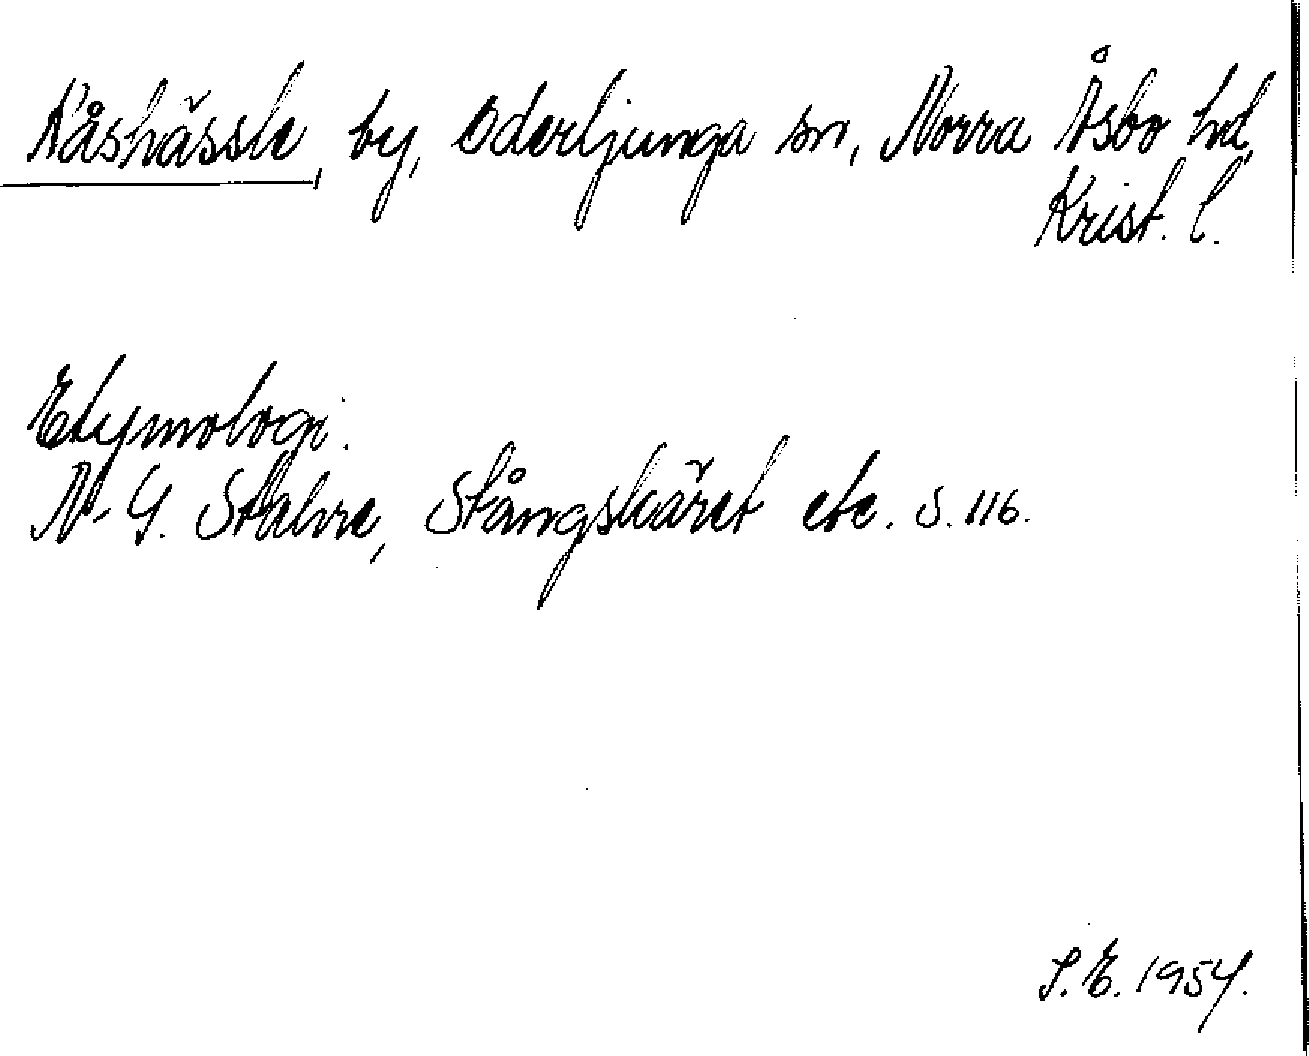 Råshässle, by, Oderljunga sn, Norra Åsbo hd,
Krist. l.
Etymologi.
N-G. Stahre, Stångskäret etc. S. 116.
S.E. 1954.